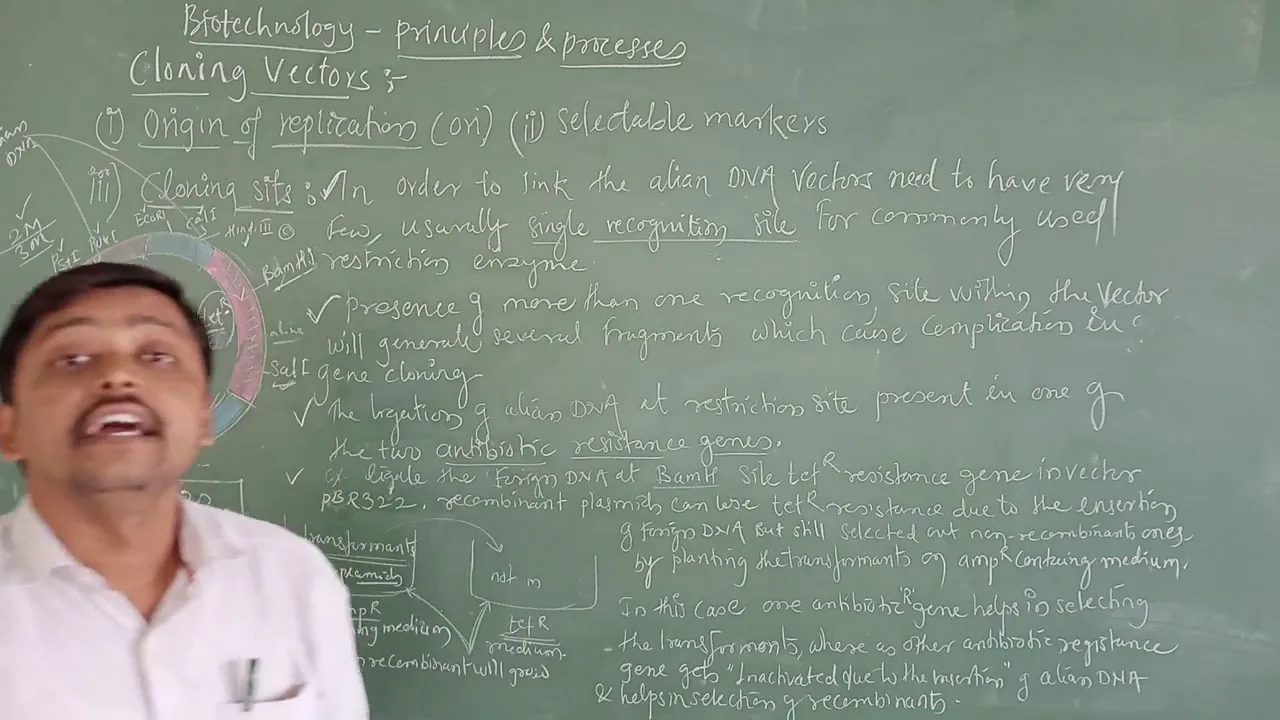 Biotechnology - principles & processes
Cloning Vectors :-
(i) Origin of replication (ori) (ii) selectable markers
DNA
iii) Cloning sits : ✓In order to link the alian DNA Vectors need to have very
EcoRI
ClaI
Hind III
Few, usurally single recognition site For commonly used
2M
3M
PstI
PvuI
BamHI
restriction enzyme
✓ presence of more than one recognition site within the Vector
tetR
will generate several fragments which cause complication in
SalI
gene cloning
✓ The ligation of alian DNA at restriction site present in one of
the two antibiotic resistance genes.
✓ ex. ligate the Forign DNA at BamH site tetR resistance gene in vector
pBR322. recombinant plasmids can lose tetR resistance due to the ensertion
of Forign DNA But still selected out non-recombinant ones
by planting the transformants on ampR containg medium.
transformants
plasmids
not in
ampR
medium
tetR
medium.
recombinant will grow
In this case one antibioticR gene helps in selecting
the transforments, where as other antibiotic registance
gene gets "Inactivated due to the insertion" of alian DNA
& helps in selection of recombinants.